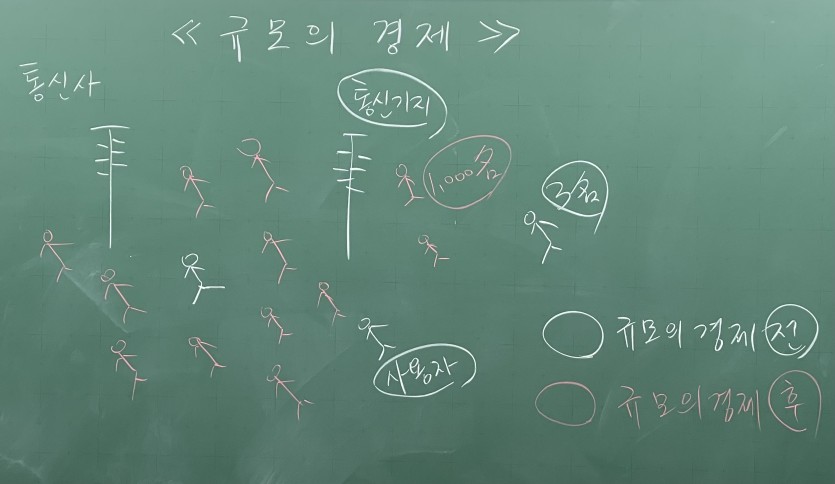 ≪ 규모의 경제 ≫
통신사
통신기지
1,000名
3名
사용자
규모의 경제 전
규모의 경제 후